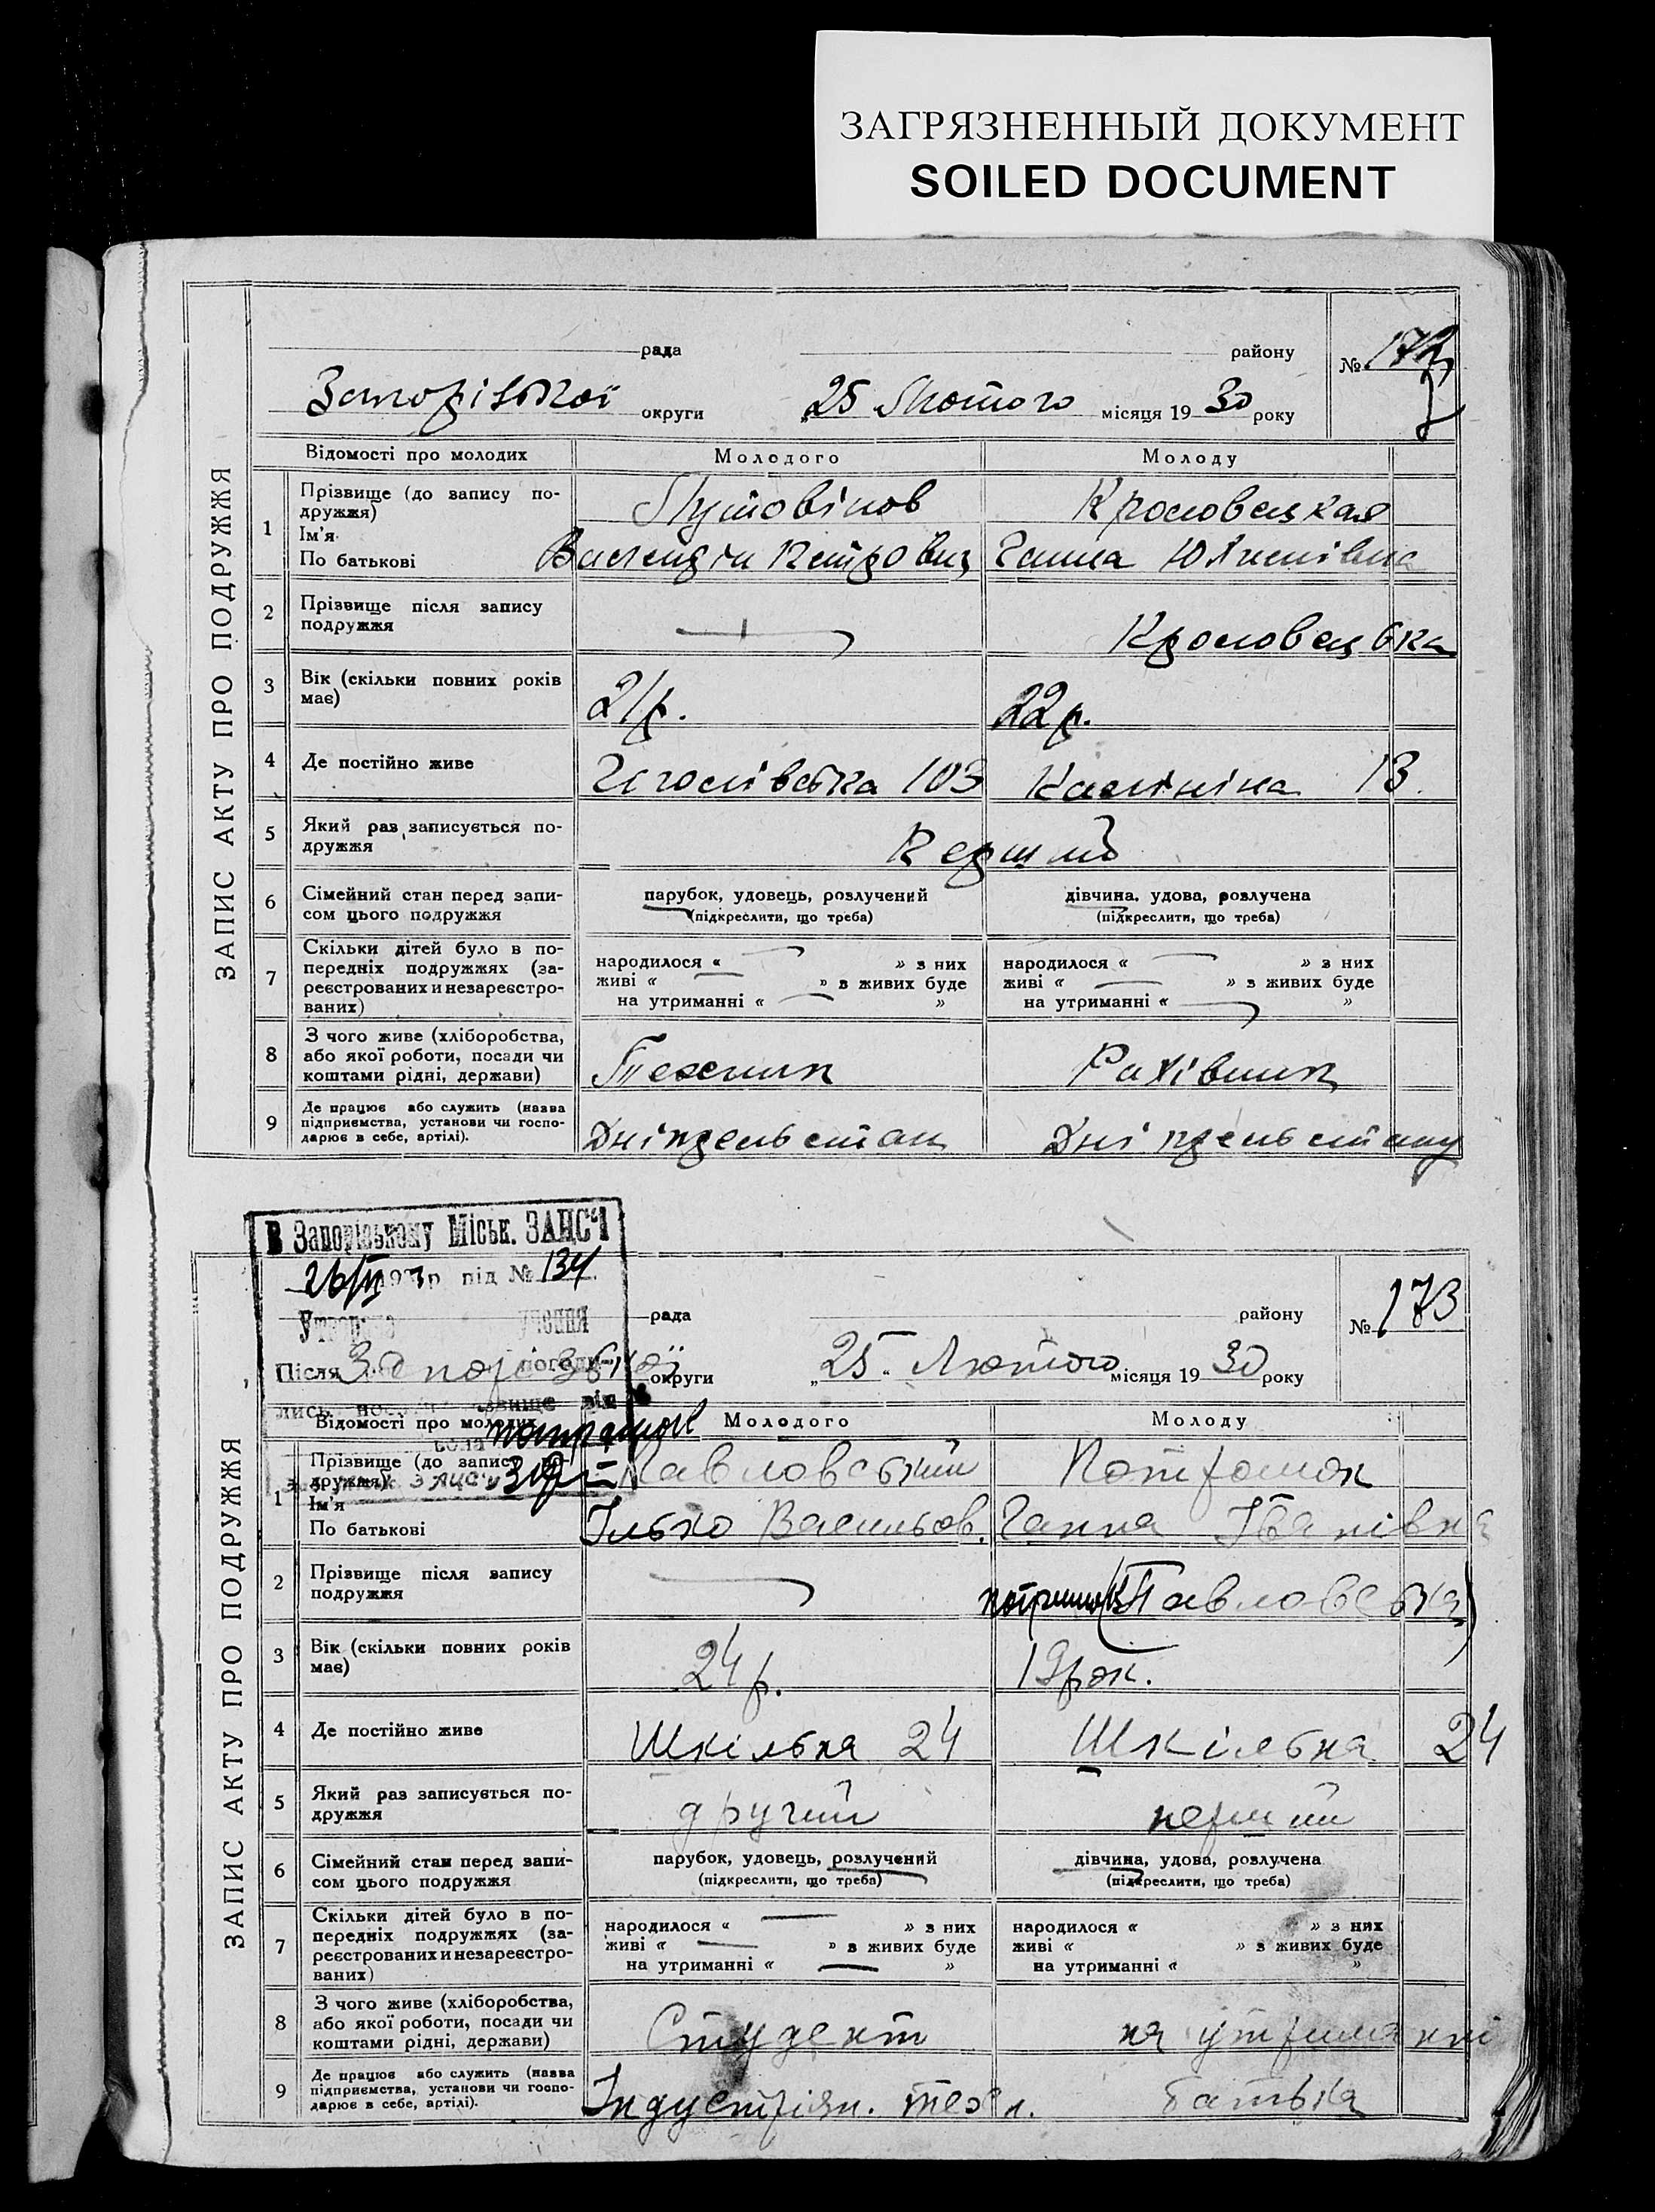 ЗАГРЯЗНЕННЫЙ ДОКУМЕНТ
SOILED DOCUMENT
ЗАПИС АКТУ ПРО ПОДРУЖЖЯ
рада району № 172
Запорізької округи „25 Лютого місяця 19 30 року
Відомості про молодих Молодого Молоду
1 Прізвище (до запису по-
дружжя)
Ім'я
По батькові
Кроловецкая
Валендін Петрович Ганна
2 Прізвище після запису
подружжя
Кроловецька
3 Вік (скільки повних років
має)
21 р. 22 р.
4 Де постійно живе 103 Калініна 13.
5 Який раз записується по-
дружжя
Перший
6 Сімейний стан перед запи-
сом цього подружжя
парубок, удовець, розлучений дівчина, удова, розлучена
(підкреслити, що треба) (підкреслити, що треба)
7 Скільки дітей було в по-
передніх подружжях (за-
реєстрованих и незареєстро-
ваних)
народилося « » з них народилося « » з них
живі « » з живих буде живі « » з живих буде
на утриманні « » на утриманні « »
8 З чого живе (хліборобства,
або якої роботи, посади чи
коштами рідні, держави)
Технік Рахівник
9 Де працює або служить (назва
підприємства, установи чи госпо-
дарює в себе, артілі).
Дніпрельстан Дніпрельстану
В Запорізькому Міськ. ЗАНС'І
26/VI р під № 134
Після
ЗАПИС АКТУ ПРО ПОДРУЖЖЯ
рада району № 173
Запорозької округи „25" Лютого місяця 19 30 року
Відомості про молодих Молодого Молоду
1 Прізвище (до запису
дружжя)
Ім'я
По батькові
Павловський Потрошок
Ілько Васильов. Ганна Іванівна
2 Прізвище після запису
подружжя
(Павловська)
3 Вік (скільки повних років
має)
24 р. 19 рок.
4 Де постійно живе Шкільна 24 Шкільна 24
5 Який раз записується по-
дружжя
другий перший
6 Сімейний стан перед запи-
сом цього подружжя
парубок, удовець, розлучений дівчина, удова, розлучена
(підкреслити, що треба) (підкреслити, що треба)
7 Скільки дітей було в по-
передніх подружжях (за-
реєстрованих и незареєстро-
ваних)
народилося « » з них народилося « » з них
живі « » з живих буде живі « » з живих буде
на утриманні « » на утриманні « »
8 З чого живе (хліборобства,
або якої роботи, посади чи
коштами рідні, держави)
Студент на утриманні
9 Де працює або служить (назва
підприємства, установи чи госпо-
дарює в себе, артілі).
Індустріял. техн. батька